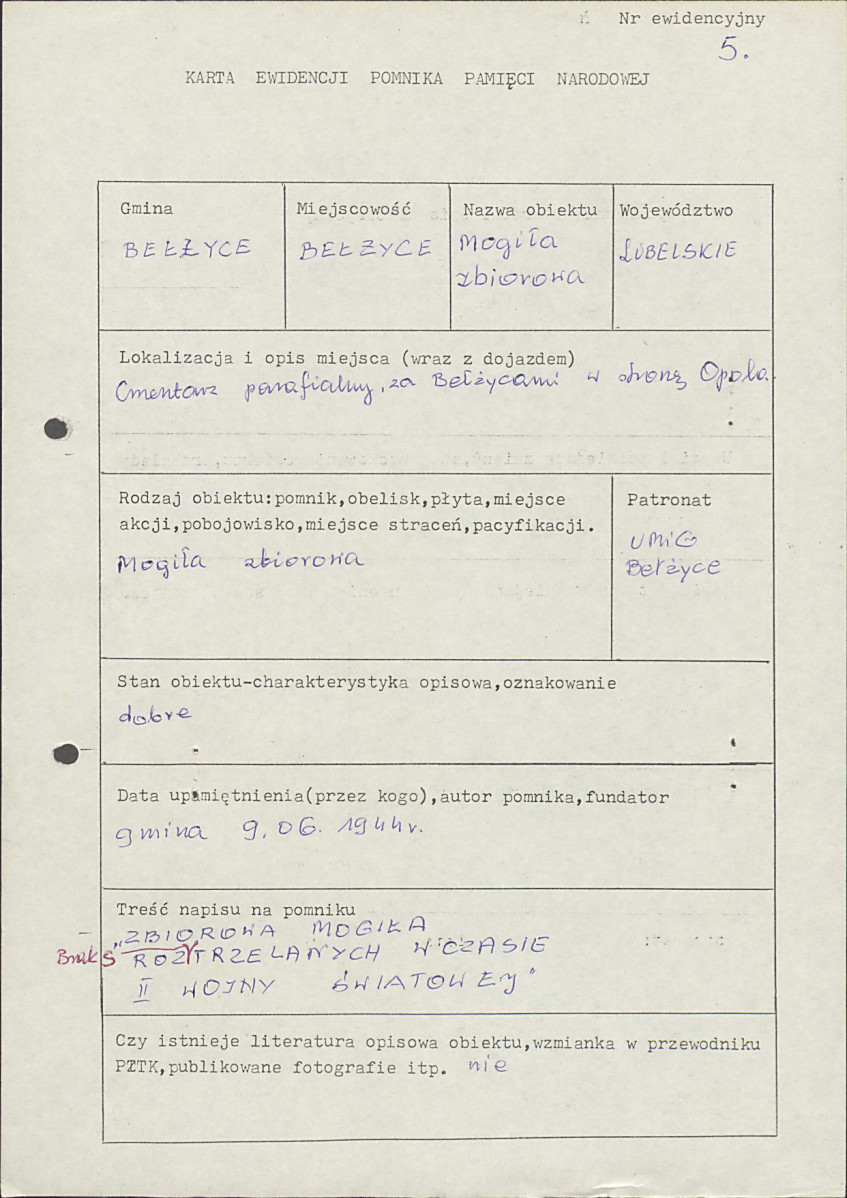 Nr ewidencyjny
5.
KARTA EWIDENCJI POMNIKA PAMIĘCI NARODOWEJ
Gmina
BEŁŻYCE
Miejscowość
BEŁŻYCE
Nazwa obiektu
Mogiła
zbiorowa
Województwo
LUBELSKIE
Lokalizacja i opis miejsca (wraz z dojazdem)
Cmentarz parafialny, za Bełżycami w stronę Opola
Rodzaj obiektu:pomnik,obelisk,płyta,miejsce
akcji,pobojowisko,miejsce straceń,pacyfikacji.
Mogiła zbiorowa
Patronat
UMiG
Bełżyce
Stan obiektu-charakterystyka opisowa,oznakowanie
dobre
Data upamiętnienia(przez kogo),autor pomnika,fundator
gmina 9.06.1944r.
Treść napisu na pomniku
„ZBIOROWA MOGIŁA
Brak S ROZTRZELANYCH W CZASIE
II WOJNY ŚWIATOWEJ"
Czy istnieje literatura opisowa obiektu,wzmianka w przewodniku
PZTK,publikowane fotografie itp. nie